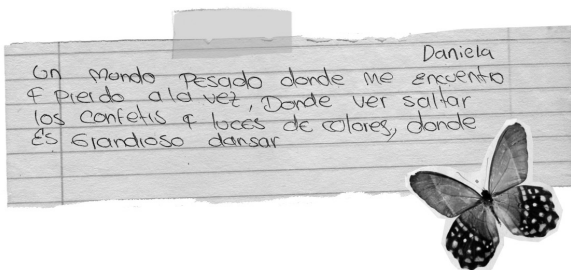 Daniela
Un Mundo Pesado donde me encuentro
& pierdo a la vez, Donde ver saltar
los confetis & luces de colores, donde
Es Grandioso dansar